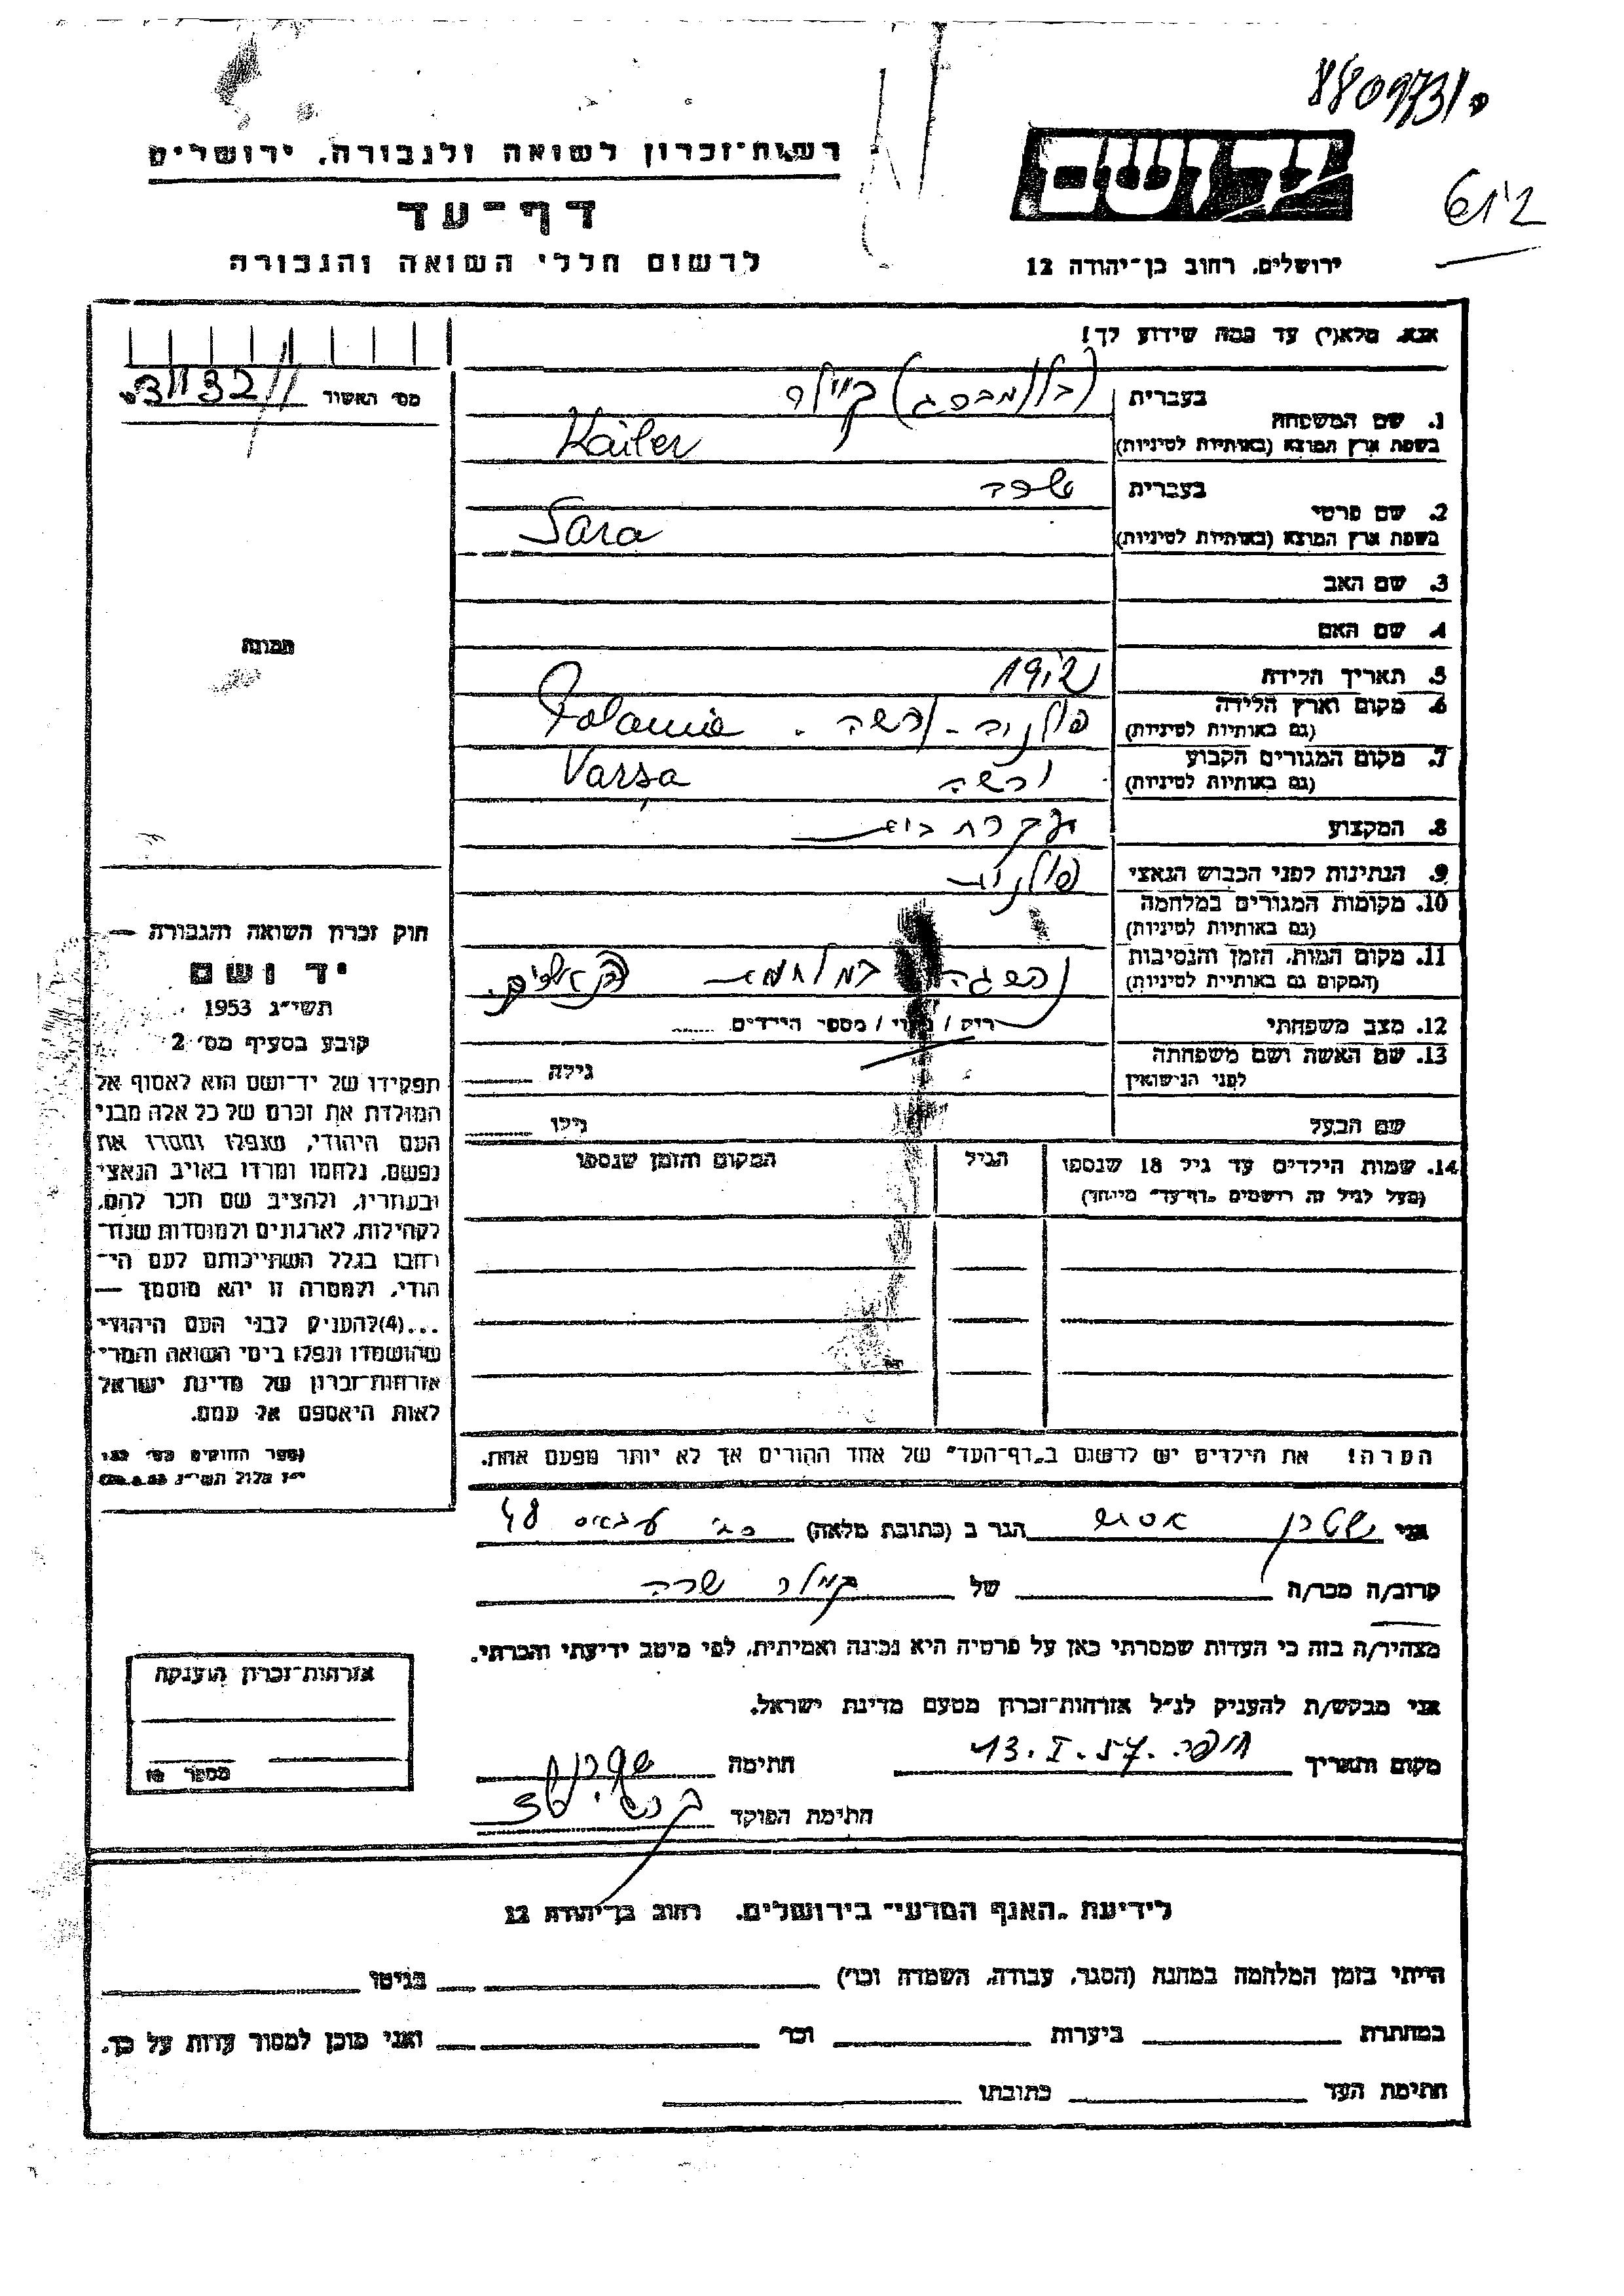 8809731
רשות־זכרון לשואה ולגבורה, ירושלים
יד ושם
דף־עד
לרשום חללי השואה והגבורה
ירושלים, רחוב בן־יהודה 12
אנא, מלא(י) עד כמה שידוע לך!
מס׳ האשור
בעברית
קיילר
1. שם המשפחה
בשפת ארץ המוצא (באותיות לטיניות)
Kailer
בעברית
שרה
2. שם פרטי
בשפת ארץ המוצא (באותיות לטיניות)
Sara
3. שם האב
4. שם האם
תמונה
5. תאריך הלידה
6. מקום וארץ הלידה
(גם באותיות לטיניות)
פולניה - ורשה - Polania
7. מקום המגורים הקבוע
(גם באותיות לטיניות)
ורשה Varsa
8. המקצוע
עקרת בית
9. הנתינות לפני הכבוש הנאצי
פולניה
10. מקומות המגורים במלחמה
(גם באותיות לטיניות)
11. מקום המות, הזמן והנסיבות
(המקום גם באותיות לטיניות)
במלחמה
12. מצב משפחתי
רוק / נשוי / מספר הילדים
13. שם האשה ושם משפחתה
לפני הנישואין
גילה
שם הבעל
גילו
14. שמות הילדים עד גיל 18 שנספו
(מעל לגיל זה רושמים „דף־עד” מיוחד)
הגיל
המקום והזמן שנספו
חוק זכרון השואה והגבורה —
יד ושם
תשי״ג 1953
קובע בסעיף מס׳ 2
תפקידו של יד־ושם הוא לאסוף אל
המולדת את זכרם של כל אלה מבני
העם היהודי, שנפלו ומסרו את
נפשם, נלחמו ומרדו באויב הנאצי
ובעוזריו, ולהציב שם וזכר להם,
לקהילות, לארגונים ולמוסדות שנח־
רחבו בגלל השתייכותם לעם הי־
הודי, ולמטרה זו יהא מוסמך —
...(4)להעניק לבני העם היהודי
שהושמדו ונפלו בימי השואה והמרי
אזרחות־זכרון של מדינת ישראל
לאות היאספם אל עמם.
(ספר החוקים מס׳ 132
י״ז אלול תשי״ג 28.8.53)
הערה! את הילדים יש לרשום ב„דף־העד” של אחד ההורים אך לא יותר מפעם אחת.
אני שטרן הגר ב (כתובת מלאה)
קרוב/ה מכר/ה של קיילר שרה
מצהיר/ה בזה כי העדות שמסרתי כאן על פרטיה היא נכונה ואמיתית, לפי מיטב ידיעתי והכרתי.
אני מבקש/ת להעניק לנ״ל אזרחות־זכרון מטעם מדינת ישראל.
מקום ותאריך חיפה. 13.I.57 חתימה שטרן
חתימת הפוקד
אזרחות־זכרון הוענקה
מספר
לידיעת „האגף המדעי” בירושלים, רחוב בן־יהודה 12
הייתי בזמן המלחמה במחנה (הסגר, עבודה, השמדה וכו׳) בגיטו
במחתרת ביערות וכו׳ ואני מוכן למסור עדות על כך.
חתימת העד כתובתו